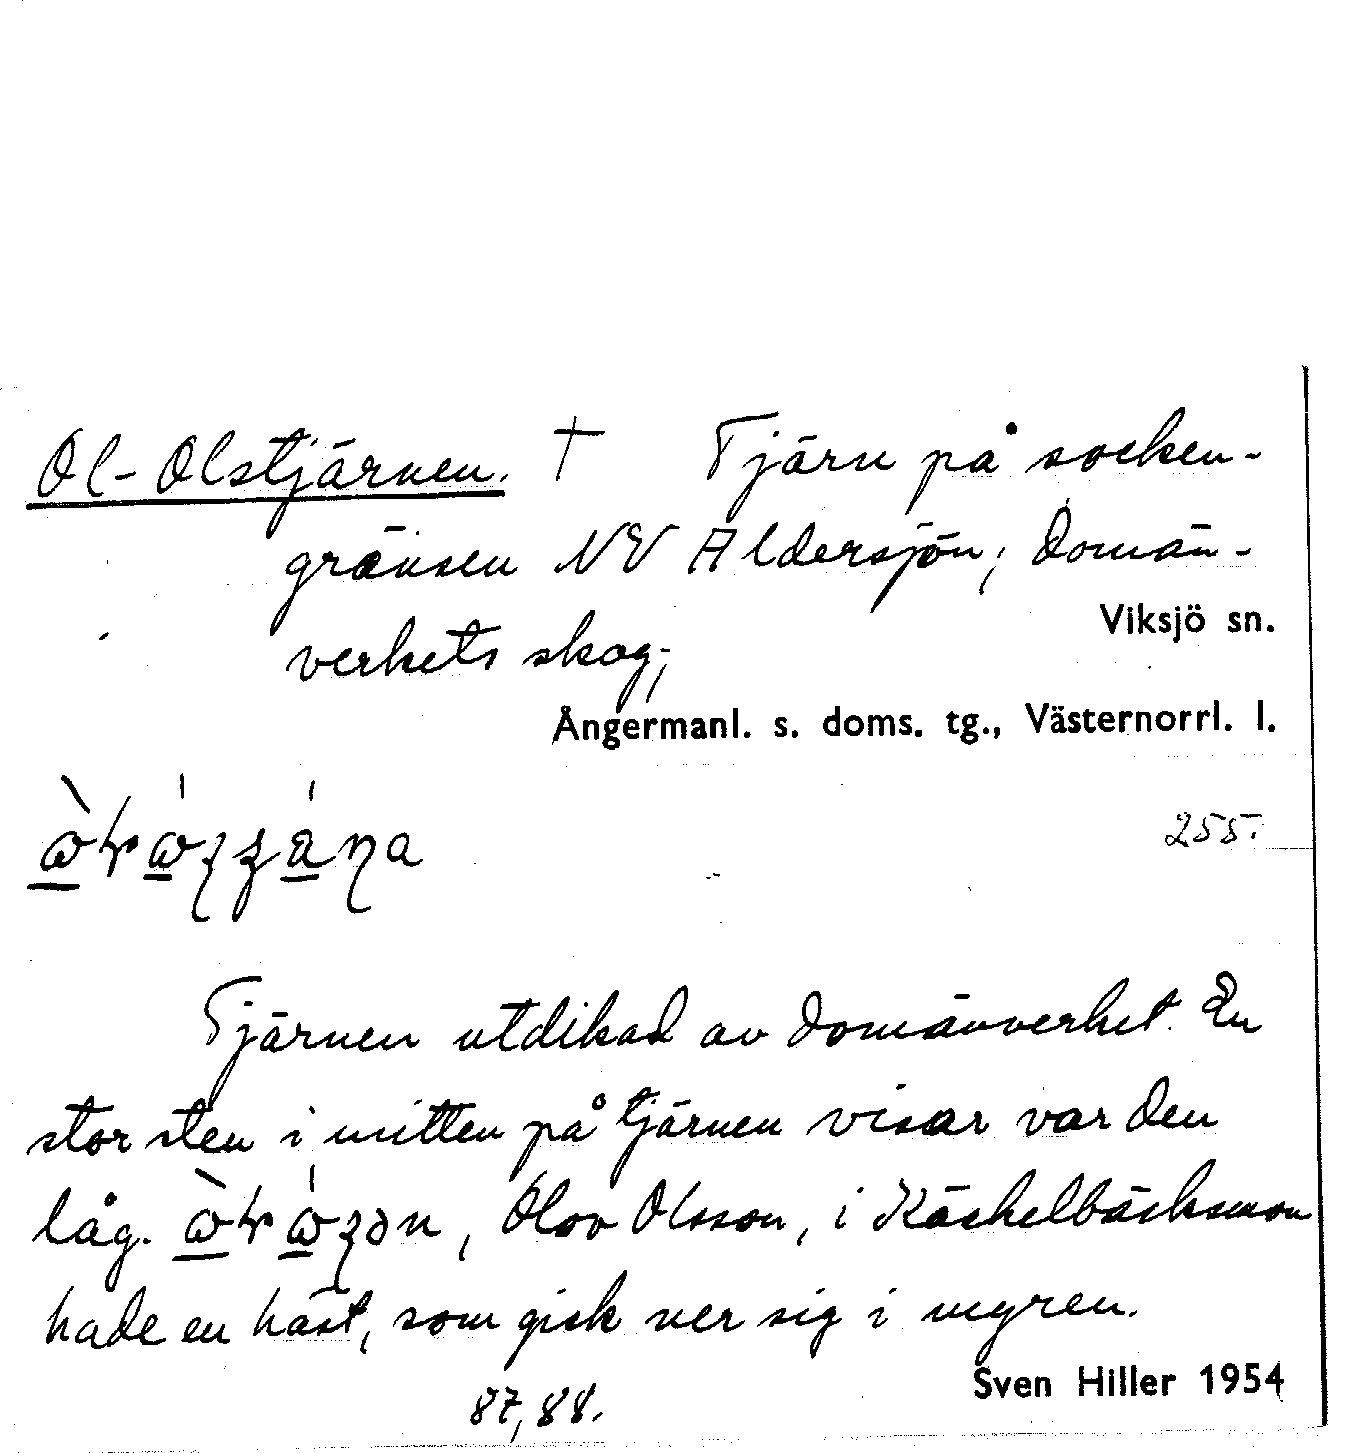 Ol-Olstjärnen. † Tjärn på socken-
gränsen NV Aldersjön; Domän-
Viksjö sn.
verkets skog;
Ångermanl. s. doms. tg., Västernorrl. l.
255.
Tjärnen utdikad av Domänverket. En
stor sten i mitten på tjärnen visar var den
låg. , Olov Olsson, i Käskelbäcksmon
hade en häst, som gick ner sig i myren.
Sven Hiller 1954
87,88.